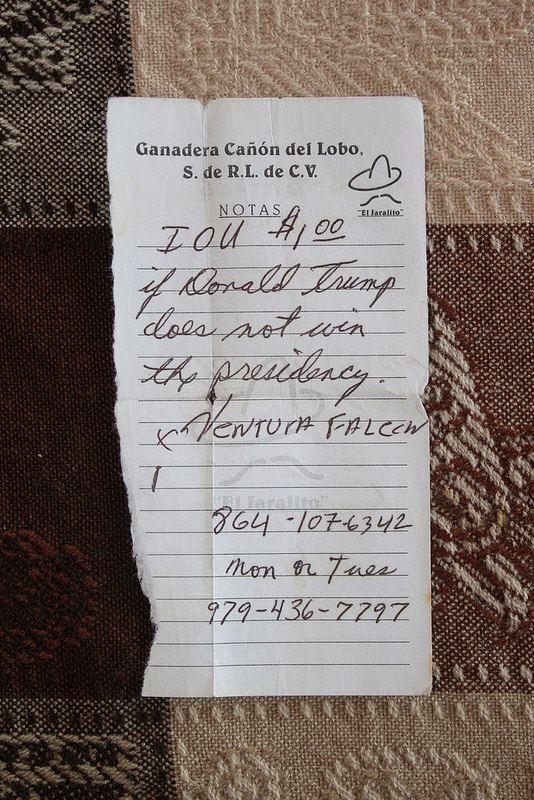 Ganadera Cañón del Lobo,
S. de R.L. de C.V.
"El Jaralito"
NOTAS
IOU $1,00
if Donald Trump
does not win
the presidency.
x VENTURA FALCON
1
"El Jaralito"
864-107-6342
Mon or Tues
979-436-7797